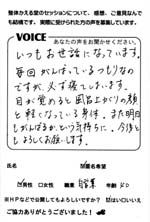 整体かえる堂のセッションについて、感想、ご意見なんで
も結構です。実際に受けられた方の声を募集しています。
VOICE
あなたの声をお聞かせください。
いつもお世話になっています。
毎回がんばっているつもりなの
ですが、必ず寝てしまいます。
目が覚めると風呂上がりの顔
と軽くなっている身体。また明日
もがんばるかという気持ちに。今後とも
よろしくお願いします。
氏名
匿名希望
男性 □女性 職業 自営業 年齢
※ＨＰなどで公開してもよろしいですか？ はい□いいえ
ご協力ありがとうございました！